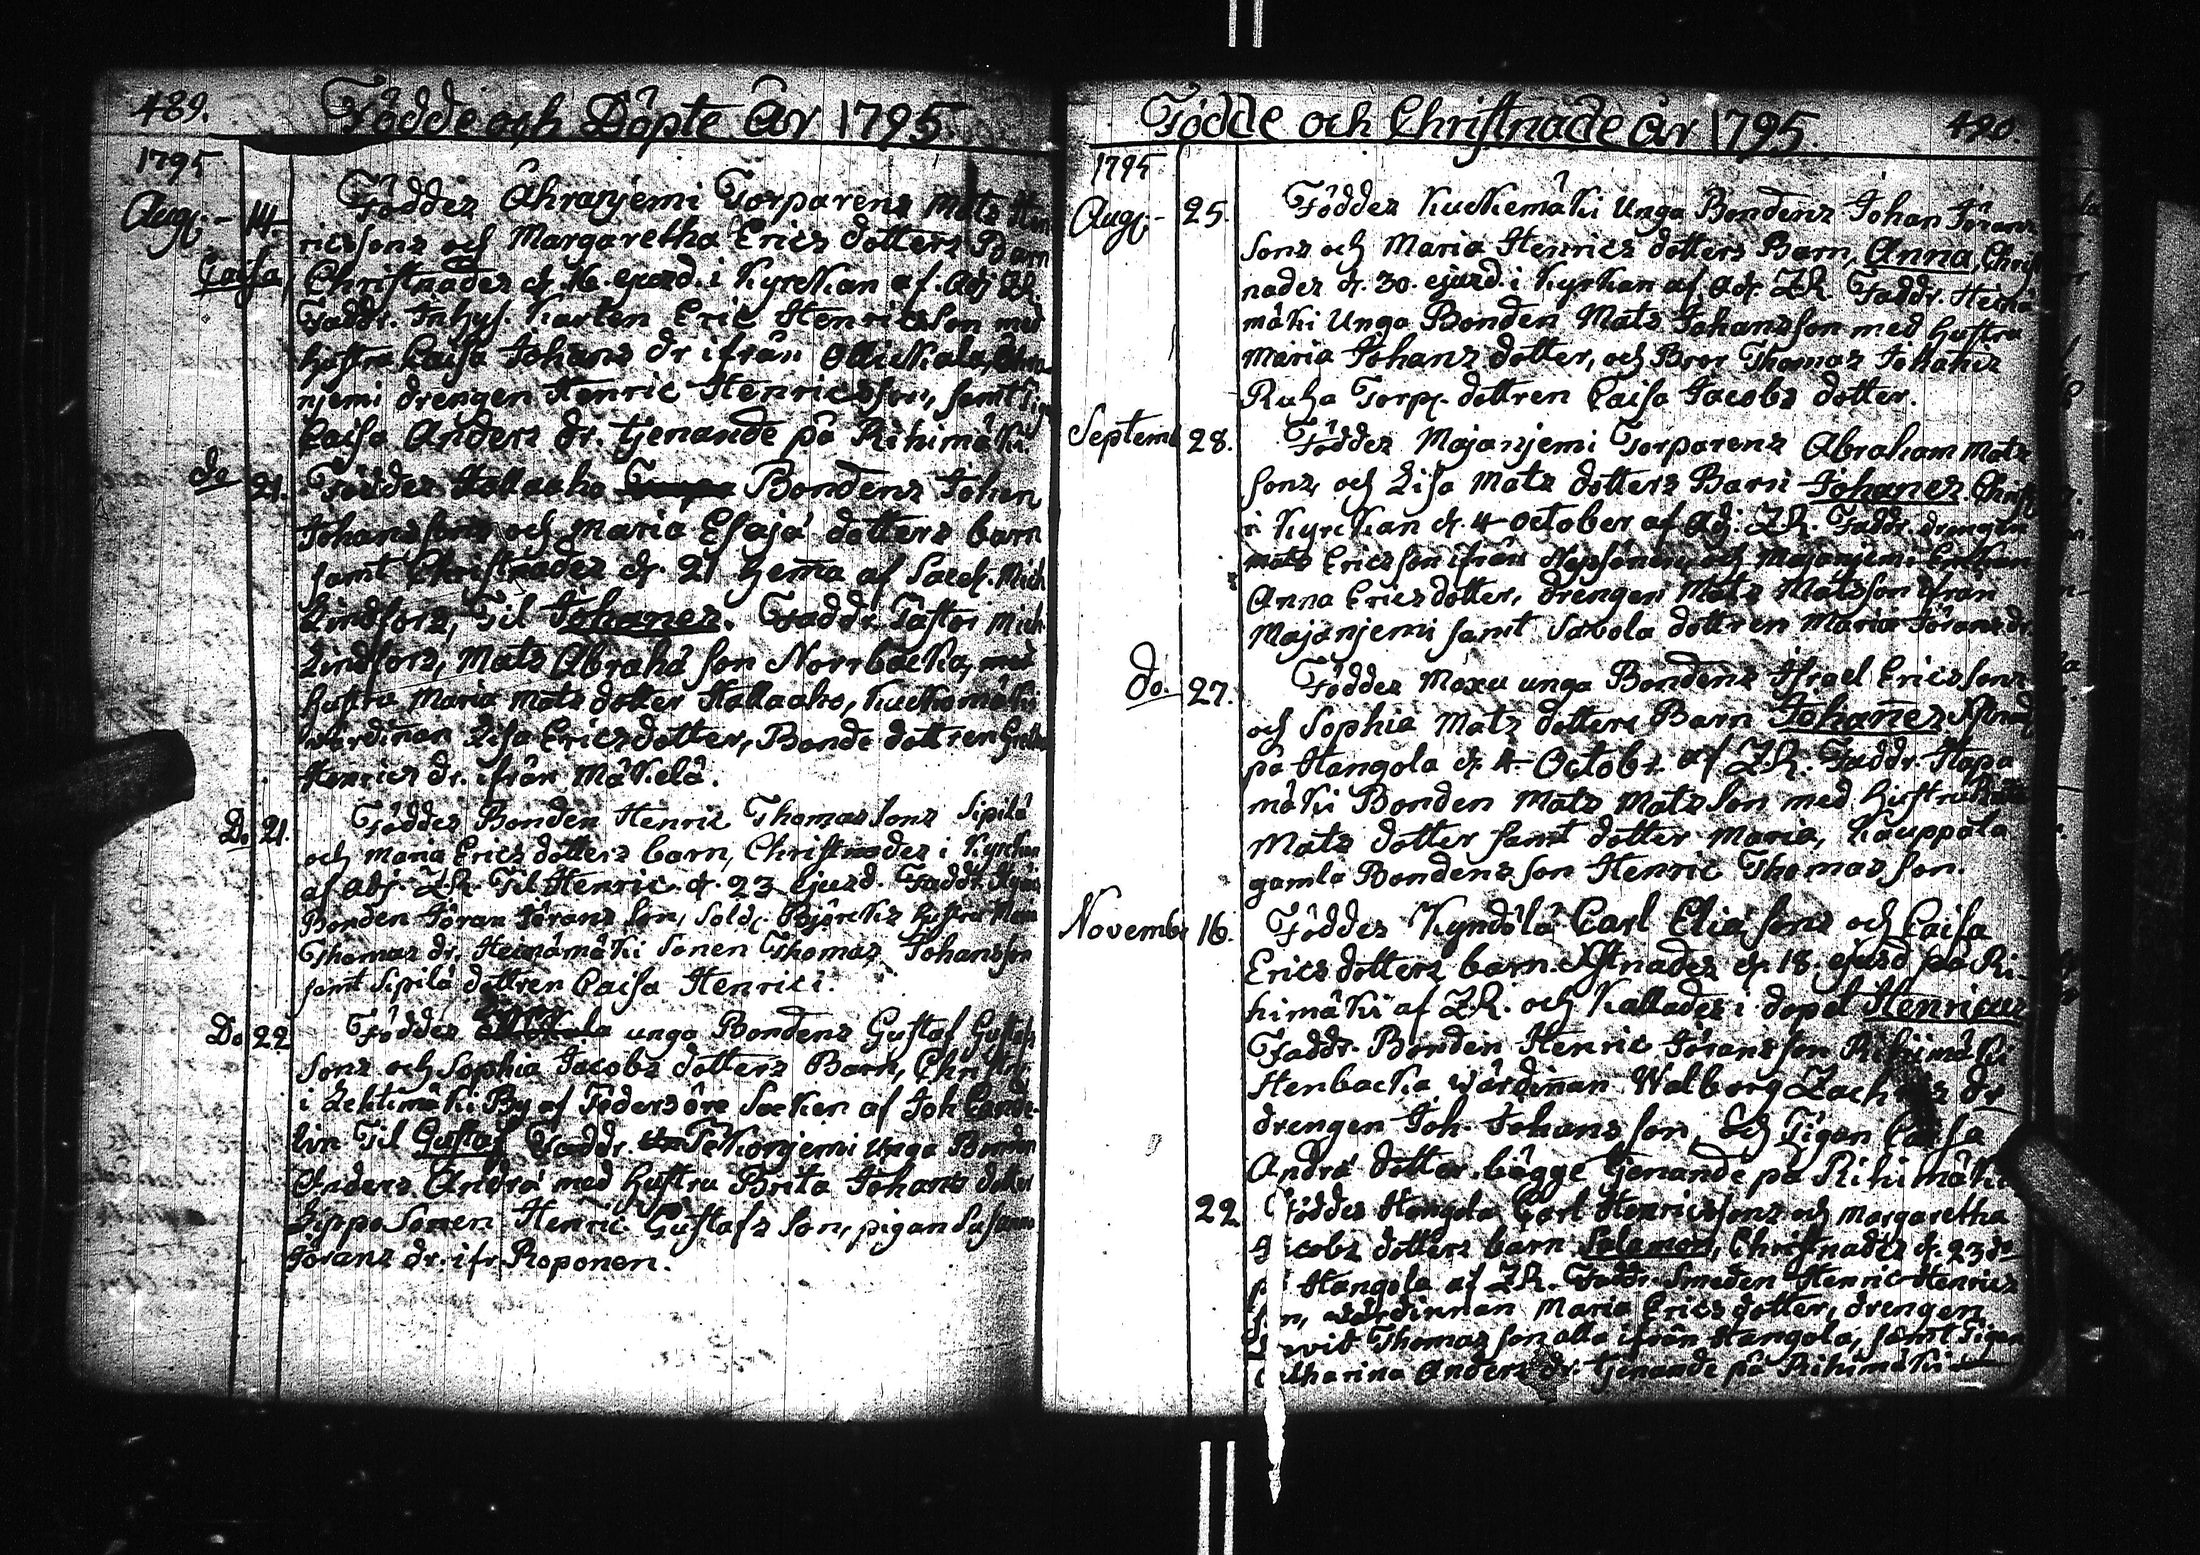 489.
Födde och Döpte År 1795
1795
Aug. 14. Föddes Åhranjemi Torparens Mats Hen
ricssons och Margaretha Erics dotters Barn
Caisa, Christnades d. 16. ejusd. i Kyrckan af Adj ZR.
Faddr. Inhys. Karlen Eric Henricsson med
hustru Caisa Johans dr ifrån Ollickala, Åhra
njemi drengen Henric Henricsson, samt Pigan
Caisa Anders dr. tjenande på Rihimäki.
do 21. Föddes Kallaaho Bondens Johan
Johanssons och Maria Esajæ dotters barn
samt Christnades d. 21 hema af Sacell. Mich
Lindfors, Til Johanes. Faddr. Pastor Mich.
Lindfors, Mats Abrahā son Norrbacka, med
hustru Maria Mats dotter Kallaaho, Kuckomäki
wärdinan Lisa Ericsdotter, Bonde dottren
Henrics dr. ifrån Mäkelä.
Do 21. Föddes Bonden Henric Thomassons Sipilä
och Maria Erics dotters barn, Christnades i Kyrckan
af Adj. Z.R. Til Henric d. 23 ejusd. Faddr.
Bonden Jöran Jörans son, Sold. Björcks hustru
Thomas dr. Heimämäki Sonen Thomas Johansson
samt Sipilä dottren Caisa Henrici.
Do 22 Föddes unga Bondens Gustaf Gustafs
sons och Sophia Jacobs dotters Barn, Christn.
i Lehtimäki By af Pedersöre Socken af Joh
lin Til Gustaf Faddr. Pekonjemi Unga Bonden
Anders Andrs med hustru Brita Johans dotter
Lippo Sonen Henric Gustafs son, pigan Susanna
Jörans dr. ifr. Roponen.
Födde och Christnade År 1795. 490.
1795
Aug. 25. Föddes Kuckemäki Unga Bondens Johan Jörans
sons och Maria Henrics dotters Barn, Anna, Christ
nades d. 30. ejusd. i Kyrkan af Adj. ZR. Faddr. Heimä
mäki Unga Bonden Mats Johansson med hustru
Maria Johans dotter, och Bror Thomas Johans
Ruha Torp. dottren Caisa Jacobs dotter.
Septemb 28. Föddes Majanjemi Torparens Abraham Mats
sons, och Lisa Mats dotters Barn Johanes Christ
i Kyrckan d. 4 October af Adj. Z.R. Faddr. drengen
Mats Ericsson ifrån och Majanjemi Enckan
Anna Ericsdotter, drengen Mats Matsson ifrån
Majanjemi samt Savola dottren Maria Jörans dr
do. 27. Föddes Moxu unga Bondens Israel Ericssons
och Sophia Mats dotters Barn Johanes
på Hangola d. 4. Octobr. af Z.R. Faddr. Hapa
mäki Bonden Mats Matsson med hustru Brita
Mats dotter samt dotter Maria, Kauppala
gamla Bondens son Henric Thomasson.
Novembr 16. Föddes Kyndölä Carl Eliæ sons och Caisa
Ericsdotters barn. Xstnades d. 18. ejusd på Ri
himäki af Z.R. och Kallades i dopet Henricus
Faddr. Bonden Henric Jöransson Rihimäki
Stenbacka Wärdinan Walborg Zachris dr
drengen Joh. Johans son, och Pigan Caisa
Andræ dotter bägge tjenande på Rihimäki
22 Föddes Hangola Carl Henricssons och Margaretha
Jacobs dotters barn Solomon, Christnades d. 23 do
på Hangola af Z.R. Faddr. Smeden Henric Henrics
son, wärdinnan Maria Ericsdotter, drengen
Thomasson alla ifrån Hangola, samt Pigan
Catharina Anders dr. tjenande på Rihimäki